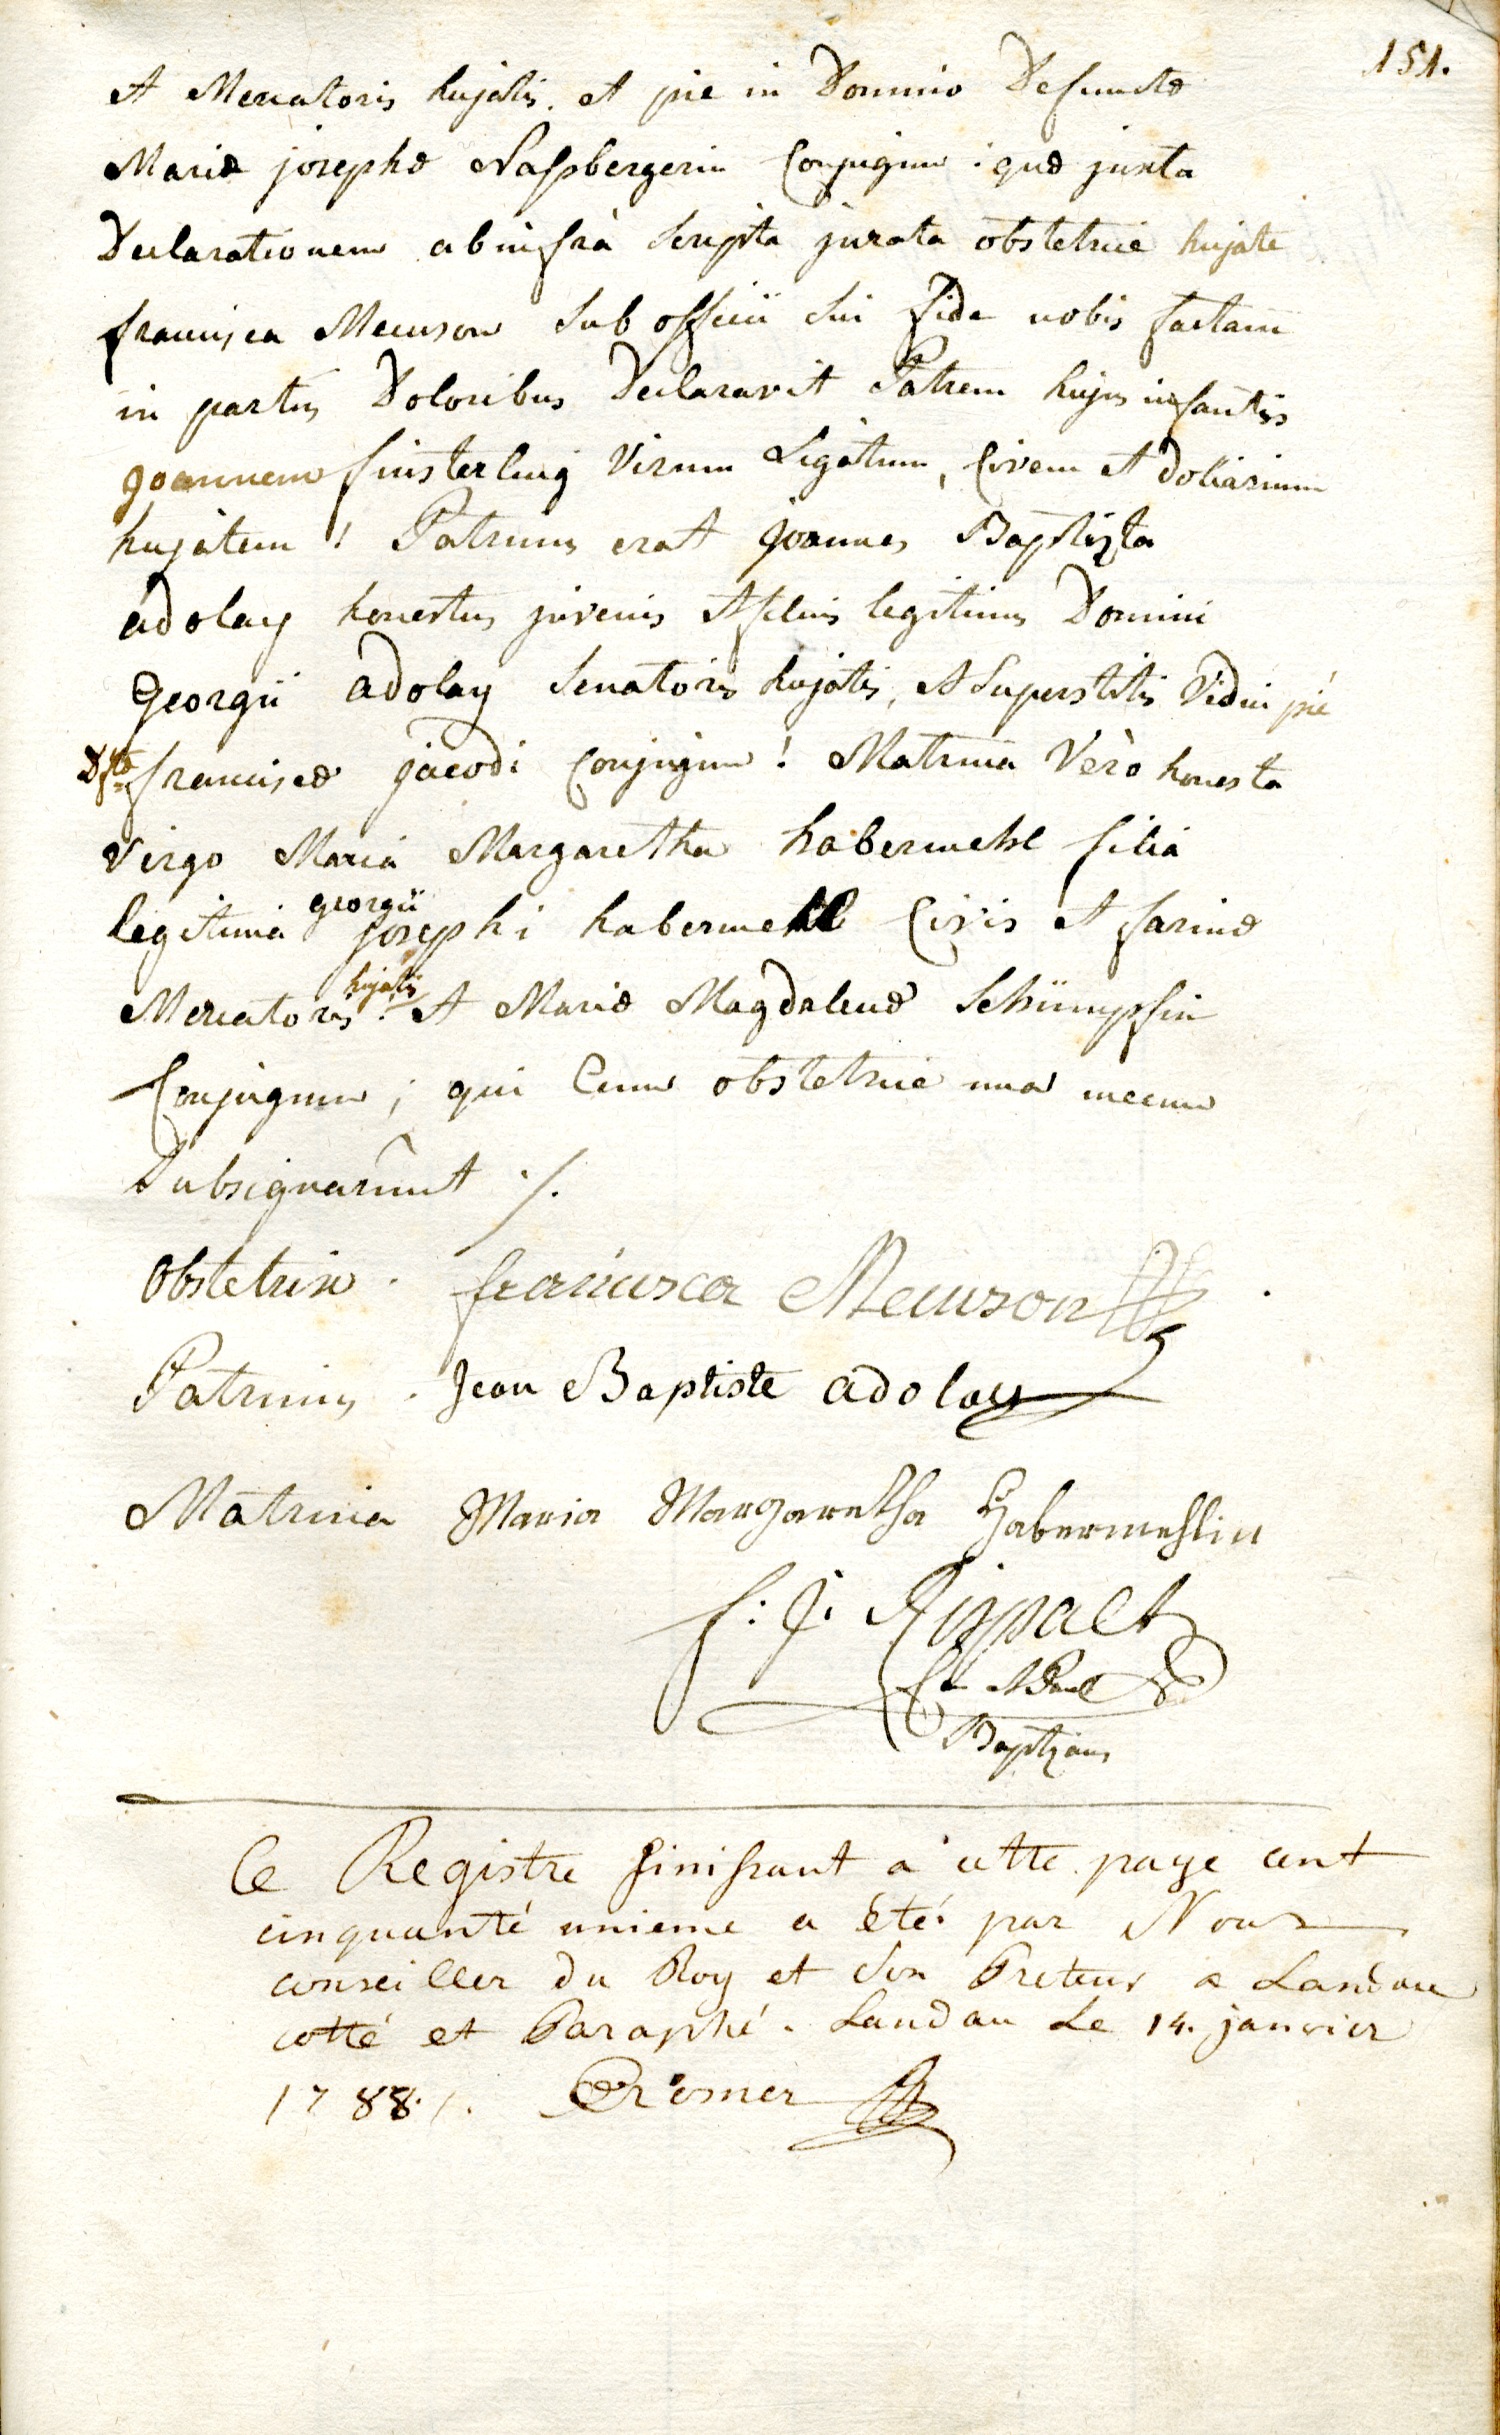 151.
et Mercatoris hujatis. et pie in Domino Defunctæ
Mariæ josephæ Naßbergerin Conjugum : quæ juxta
Declarationem ab infrà scripta jurata obstetrice hujate
francisca Meuson sub officii sui fide nobis factam
in partus Doloribus Declaravit Patrem hujus infantis
joannem finsterling Virum Ligatum, Civem et doliarium
hujatem ! Patrinus erat joannes Baptista
adolay honestus juvenis et filius legitimus Domini
Georgii adolay Senatoris hujatis, et Superstitis Vidui pié
Dftæ franciscæ jacodi Conjugum ! Matrina Verò honesta
Virgo Maria Margaretha habermehl filia
georgii
legitima josephi habermehl Civis et farinæ
hujatis
Mercatoris. et Mariæ Magdalenæ Schümpfin
Conjugum ; qui Cum obstetrice una mecum
Subsignarunt ./.
Obstetrix . francisca Meuson
Patrinus . Jean Baptiste adolay
Matrina Maria Margaretha Habermehlin
f: J: Rispalt
Baptizans
Ce Registre finissant a cette page cent
cinquanté unieme a èté par Nous
conseiller du Roy et son Preteur a Landau
cotté et Paraphé. Landau Le 14. janvier
1788./. Cromer